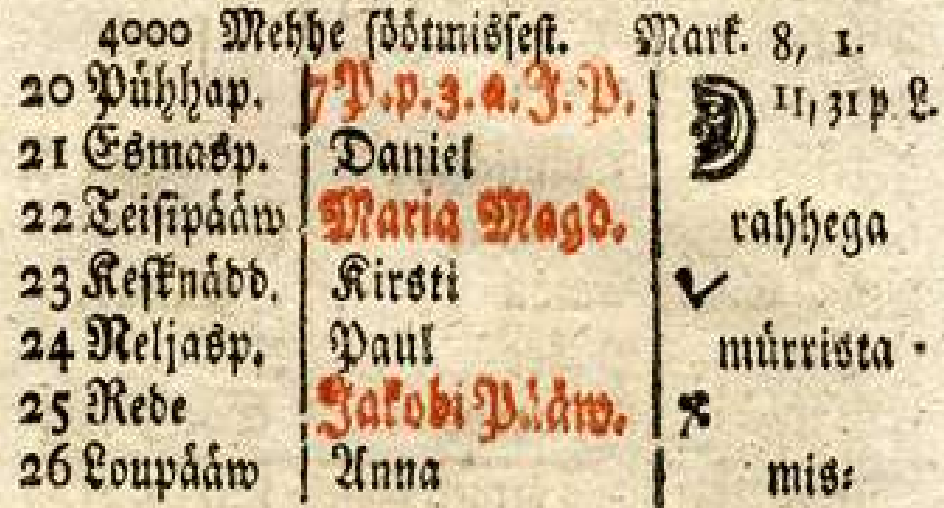 4000 Mehhe söötmissest. Mark. 8, 1.
20 Pühhap. 7 P. p. 3. a. J. P. 11, 31 p. L.
21 Esmasp. Daniel
22 Teisipääw Maria Magd. rahhega
23 Kesknädd. Kirsti
24 Neljasp. Paul mürrista-
25 Rede Jakobi Pääw.
26 Loupääw Anna mis: